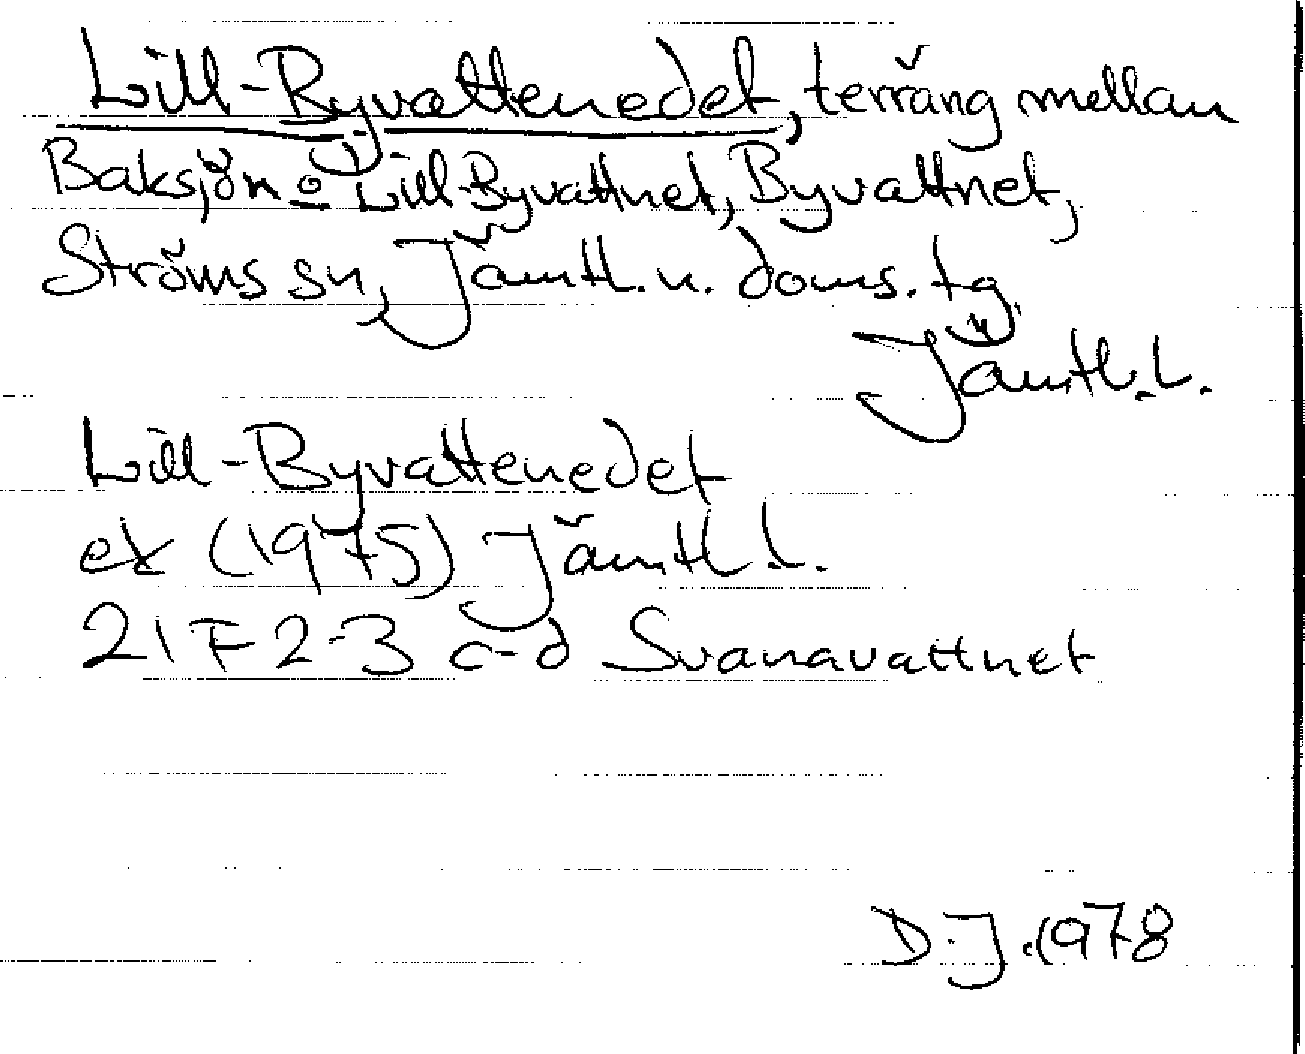 Lill-Byvattenedet, terräng mellan
Baksjön o Lill-Byvattnet, Byvattnet,
Ströms sn, Jämtl. n. doms. tg.
Jämtl. L.
Lill-Byvattenedet
ek (1975) Jämtl. l.
21 F 2-3 c-d Svanavattnet
D.J. 1978